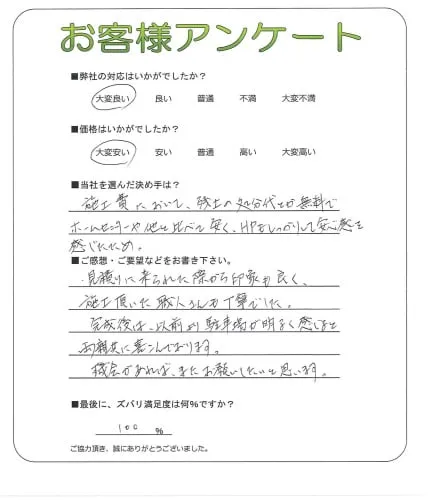 お客様アンケート
■弊社の対応はいかがでしたか？
大変良い 良い 普通 不満 大変不満
■価格はいかがでしたか？
大変安い 安い 普通 高い 大変高い
■当社を選んだ決め手は？
施工費において、残土の処分代とか無料で
ホームセンターや他と比べて安く、HPもしっかりして安心感を
感じたため。
■ご感想・ご要望などをお書き下さい。
見積りに来られた際から印象も良く、
施工頂いた職人さんも丁寧でした。
完成後は、以前より駐車場が明るく感じると
両親共に喜こんでおります。
機会があれば、またお願いしたいと思います。
■最後に、ズバリ満足度は何%ですか？
100 %
ご協力頂き、誠にありがとうございました。